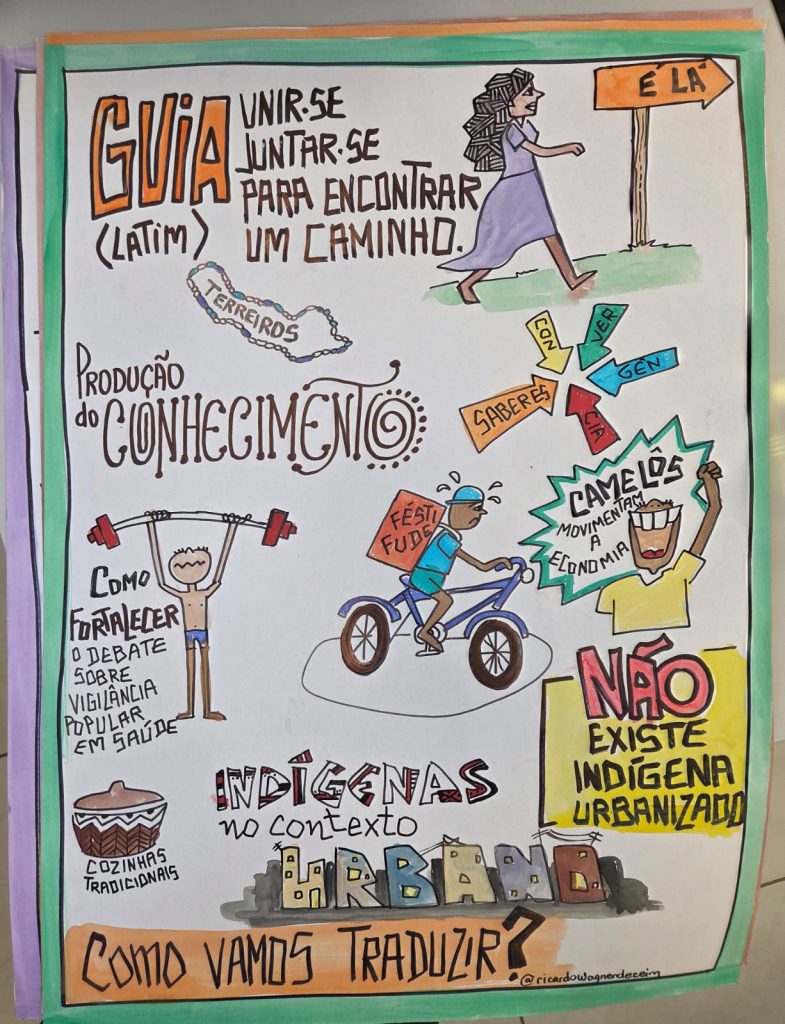 GUIA
(LATIM)
UNIR-SE
JUNTAR-SE
PARA ENCONTRAR
UM CAMINHO.
É LÁ
TERREIROS
PRODUÇÃO
do CONHECIMENTO
CON
VER
GÊN
CIA
SABERES
CAMELÔS
MOVIMENTAM
A
ECONOMIA
FÉSTI
FUDE
COMO
FORTALECER
O DEBATE
SOBRE
VIGILÂNCIA
POPULAR
EM SAÚDE
NÃO
EXISTE
INDÍGENA
URBANIZADO
INDÍGENAS
no contexto
URBANO
COZINHAS
TRADICIONAIS
COMO VAMOS TRADUZIR?
@ricardowagnerdezeim